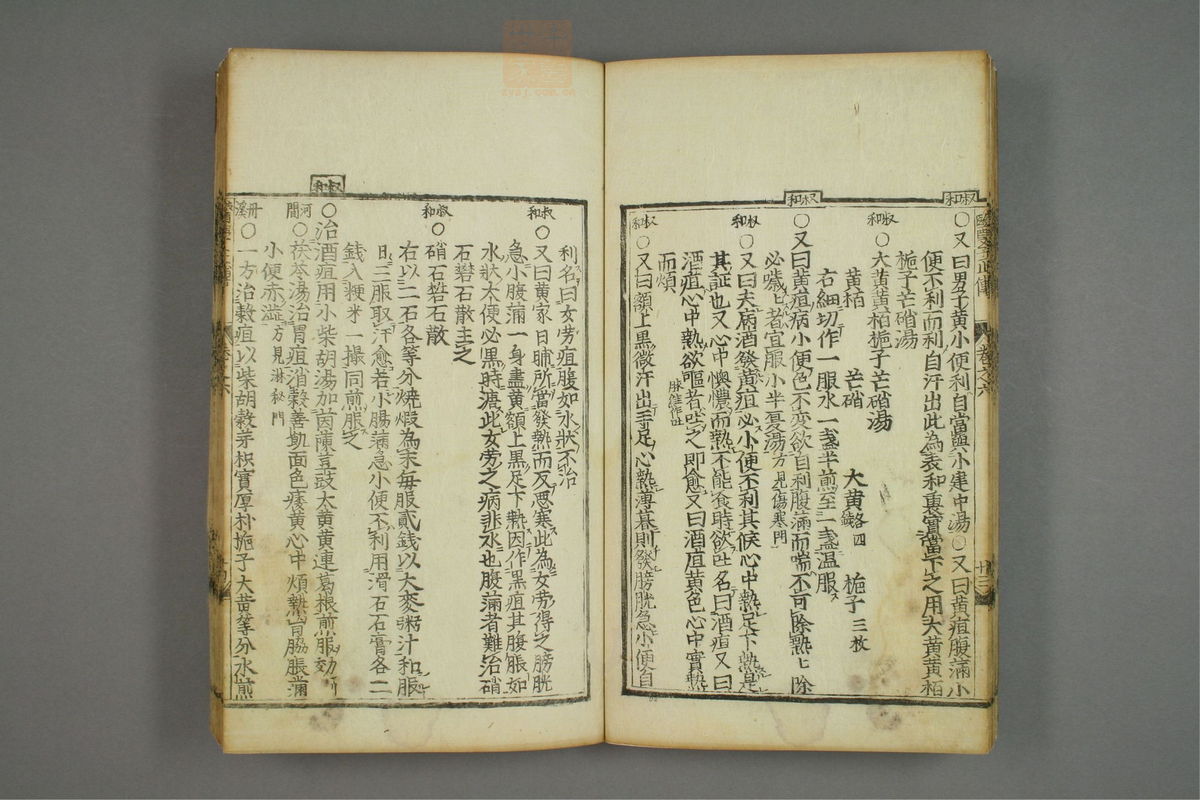 叔和
○又曰男子黄小便利自當與小建中湯○又曰黄疸腹滿小
便不利而利自汗出此為表和裏實當下之用大黄黄栢
梔子芒硝湯
叔和
○大黄黄栢梔子芒硝湯
黄栢 芒硝 大黄各四錢 梔子三枚
右細切作一服水一盞半煎至一盞温服
叔和
○又曰黄疸病小便色不變欲自利腹滿而喘不可除熱ヒ除
必噦ヒ者宜服小半夏湯方見傷寒門
叔和
○又曰夫病酒發黄疸必小便不利其候心中熱足下熱是
其証也又心中懊憹而熱不能食時欲吐名曰酒疸又曰
酒疸心中熱欲嘔者吐之即愈又曰酒疸黄色心中實熱
脉經作吐
而煩
叔和
○又曰額上黒微汗出手足心熱薄暮則發膀胱急小便自
利名曰女劳疸腹如水狀不治
叔和
○又曰黄家日晡所當發熱而反悪寒此為女劳得之膀胱
急小腹滿一身盡黄額上黒足下熱因作黒疸其腹脹如
水狀大便必黒時溏此女劳之病非水也腹滿者難治硝
石礬石散主之
叔和
○硝石礬石散
右以二石各等分燒煅為末毎服貳錢以大麥粥汁和服
日三服取汗愈若小腸滿急小便不利用滑石石膏各二
錢入粳米一撮同煎服之
叔和
○治酒疸用小柴胡湯加茵蔯豆豉大黄黄連葛根煎服効
河間
○茯苓湯治胃疸消穀善飢面色痿黄心中煩熱胷脇脹滿
小便赤澁方見淋秘門
丹溪
○一方治穀疸以柴胡穀芽枳實厚朴梔子大黄等分水煎